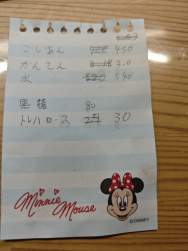 こしあん 450
かんてん 7.0
水 540
黒糖 80
トレハロース 30
Minnie
Mouse
©DISNEY